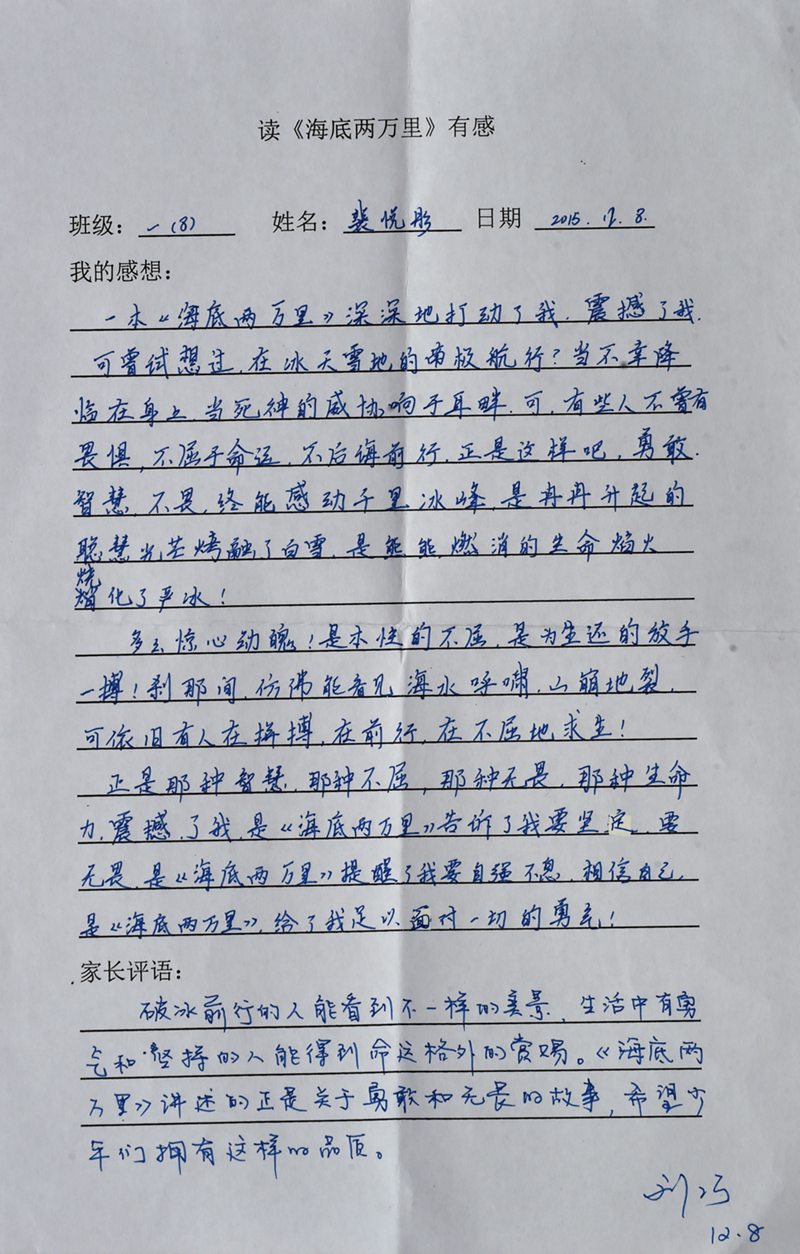 读《海底两万里》有感
班级：一(8) 姓名：裴悦彤 日期 2015.12.8.
我的感想：
一本《海底两万里》深深地打动了我，震撼了我.
可曾试想过，在冰天雪地的南极航行？当不幸降
临在身上，当死神的威协响于耳畔，可，有些人不曾有
畏惧，不屈于命运，不后悔前行，正是这样吧，勇敢.
智慧，不畏，终能感动千里冰峰，是冉冉升起的
聪慧光芒烤融了白雪，是熊熊燃消的生命焰火
烧
熔化了严冰！
多么惊心动魄！是本性的不屈，是为生还的放手
一搏！刹那间，仿佛能看见海水呼啸，山崩地裂，
可依旧有人在拼搏，在前行，在不屈地求生！
正是那种智慧，那种不屈，那种无畏，那种生命
力，震撼了我，是《海底两万里》告诉了我要坚定，要
无畏，是《海底两万里》提醒了我要自强不息，相信自己，
是《海底两万里》，给了我足以面对一切的勇气！
家长评语：
破冰前行的人能看到不一样的美景，生活中有勇
气和坚持的人能得到命运格外的赏赐。《海底两
万里》讲述的正是关于勇敢和无畏的故事，希望少
年们拥有这样的品质。
12.8